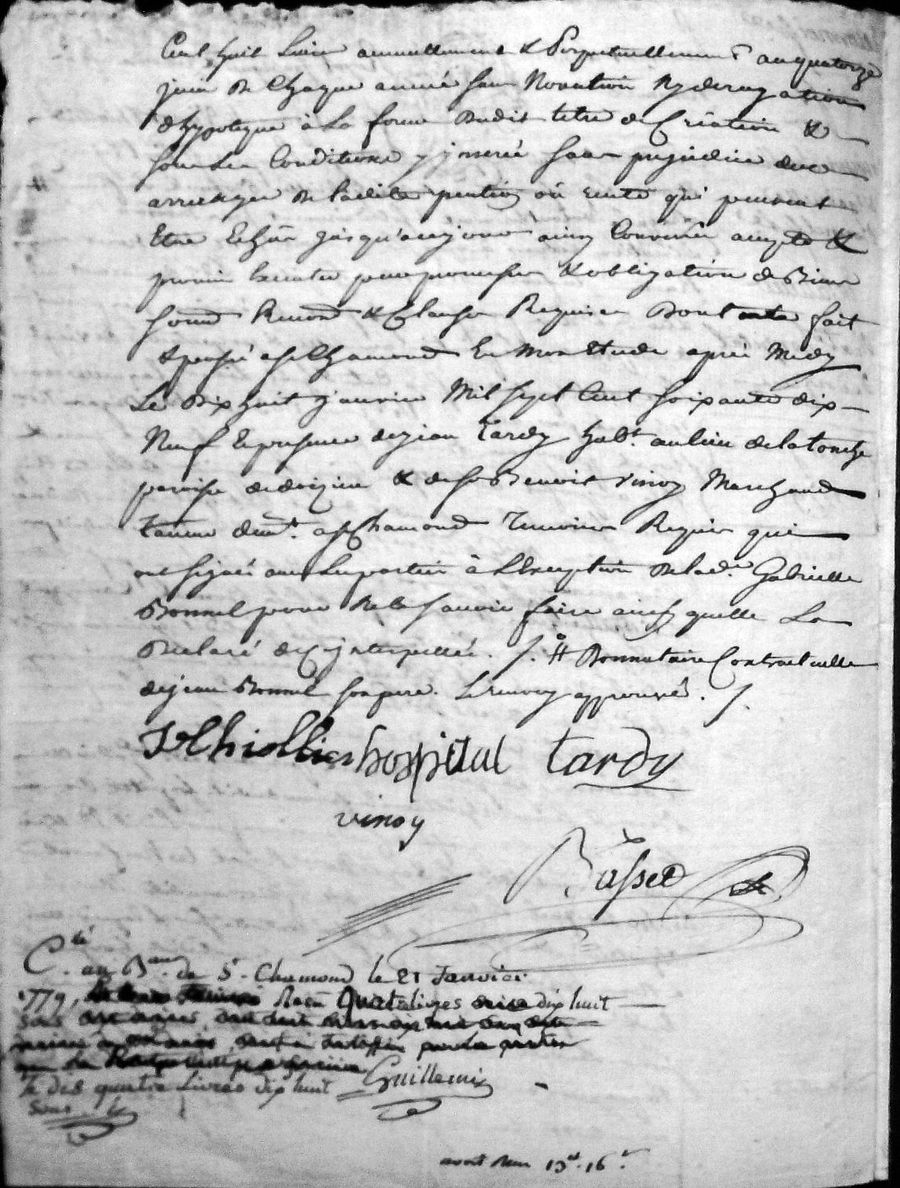 Cent huit Livres annuellement & Perpetuellement au quatorze
juin de Chaque année sans Novation Ny derogation
d'hypoteque à La forme dudit titre de Création &
sous Les Conditions y inseré sans prejudice des
arrerages de ladite pention ou rente qui peuvent
Etre Echus jusqu'aujourd ainsy Convenu accepté &
promis Executer pour promesses & obligation de Biens
soumis Renon & Clauses Requises Dont acte fait
& passé a st Chamond En Mon Etude après Midy
Le Dix huit janvier Mil sept Cent soixante dix
Neuf En presence de jean Tardy hab.t au lieu de la
paroisse de doizieu & de sr Benoit vinoy Marchand
tanneur dem.t a st Chamond Temoins Requis qui
ont signés avec Les parties à L'Exception de lad.e Gabrielle
Bonnel pour ne le sçavoir faire ainsy qu'elle La
Declaré de ce interpellée. /. # Donnataire Contractuelle
de jean Bonnel son pere. Le renvoy approuvé. /.
Chiollier hospital tardy
vinoy
Basset
C.lé au B.au de S.t Chamond le 21 Janvier
1779, Reçu Quatre livres dix huit
sous
& des quatre Livres dix huit Guillemin
sous. &
13.d 16.s